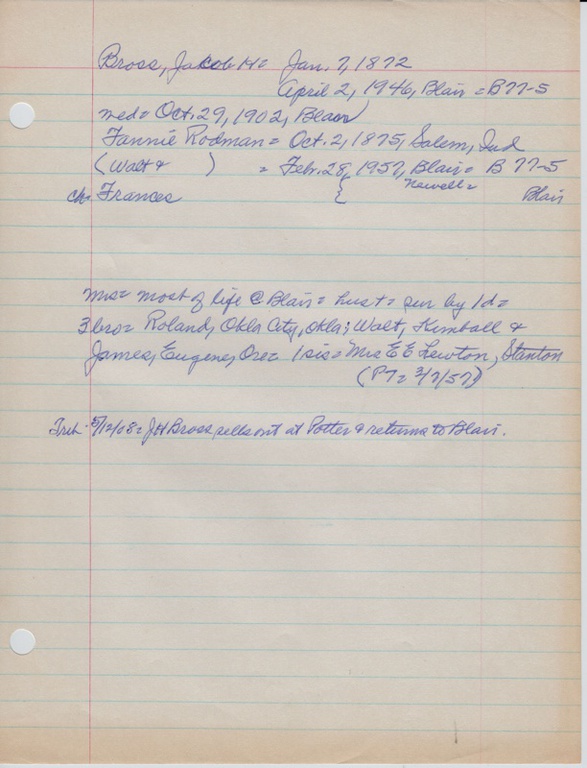 Bross, Jakob H = Jan. 7, 1872
April 2, 1946, Blair = B 77-5
med = Oct. 29, 1902, Blair
Fannie Rodman = Oct. 2, 1875, Salem, Ind
(Walt & ) = Febr. 28, 1957, Blair = B 77-5
ch = Frances { Newell = Blair
Mrs = most of life @ Blair = hus + = sur by 1d =
3 bro = Roland, Okla City, Okla; Walt, Kimball &
James, Eugene, Ore = 1 sis = Mrs E E Lewton, Stanton
(PT = 3/7/57)
5/12/08 = JH Bross sells out at Potter & returns to Blair.